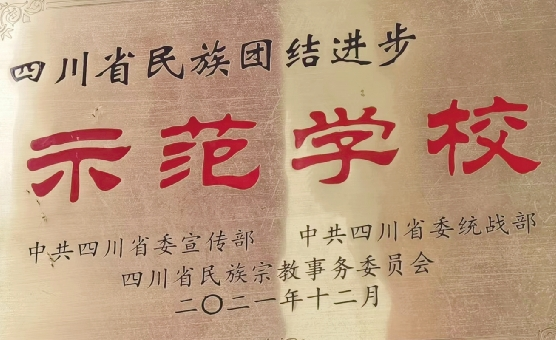 四川省民族团结进步
示范学校
中共四川省委宣传部 中共四川省委统战部
四川省民族宗教事务委员会
二〇二一年十二月